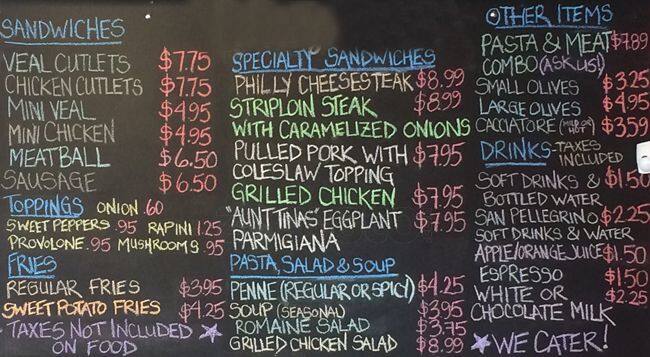 SANDWICHES
VEAL CUTLETS $7.75
CHICKEN CUTLETS $7.75
MINI VEAL $4.95
MINI CHICKEN $4.95
MEATBALL $6.50
SAUSAGE $6.50
TOPPINGS ONION .60
SWEET PEPPERS .95 RAPINI 1.25
PROVOLONE .95 MUSHROOMS .95
FRIES
REGULAR FRIES $3.95
SWEET POTATO FRIES $4.25
TAXES NOT INCLUDED
ON FOOD
SPECIALTY SANDWICHES
PHILLY CHEESESTEAK $8.99
STRIPLOIN STEAK $8.99
WITH CARAMELIZED ONIONS
PULLED PORK WITH $7.95
COLESLAW TOPPING
GRILLED CHICKEN $7.95
"AUNT TINAS" EGGPLANT $7.95
PARMIGIANA
PASTA, SALAD & SOUP
PENNE (REGULAR OR SPICY) $4.25
SOUP (SEASONAL) $3.95
ROMAINE SALAD $3.75
GRILLED CHICKEN SALAD $8.99
OTHER ITEMS
PASTA & MEAT $7.89
COMBO (ASK US!)
SMALL OLIVES $3.25
LARGE OLIVES $4.95
CACCIATORE (MILD OR HOT) $3.59
DRINKS - TAXES INCLUDED
SOFT DRINKS & $1.50
BOTTLED WATER
SAN PELLEGRINO $2.25
SOFT DRINKS & WATER
APPLE/ORANGE JUICE $1.50
ESPRESSO $1.50
WHITE OR $2.25
CHOCOLATE MILK
WE CATER!